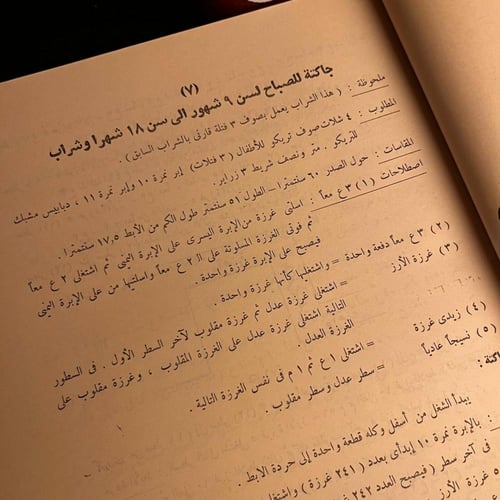 (٧)
جاكتة للصباح لسن ٩ شهور الى سن ١٨ شهرا وشراب
ملحوظة : ( هذا الشراب يعمل بصوف ٣ فتلة قارنى بالشراب السابق ) .
المطلوب : ٤ شلات صوف تريكو للأطفال ( ٣ فتلات ) إبر نمرة ١٠ وإبر نمرة ١١ ، دبابيس مشبك
للتريكو . متر ونصف شريط ٣ زراير .
المقاسات : حول الصدر ٦٠ سنتمترا - الطول ٥١ سنتمتر طول الكم من الأبط ١٧,٥ سنتمترا .
اصطلاحات (١) ٣ع معاً : اسلتى غرزة من الإبرة اليسرى على الإبرة اليمنى ثم اشتغلى ٢ ع معاً
ثم فوتى الغرزة المسلوتة على الـ ٢ ع معاً واسلتيها من على الإبرة اليمنى
فيصبح على الإبرة غرزة واحدة .
(٢) ٣ع معاً دفعة واحدة = واشتغليها كأنها غرزة واحدة .
(٣) غرزة الأرز = اشتغلى غرزة عدل ثم غرزة مقلوب لآخر السطر الأول . فى السطور
التالية اشتغلى غرزة عدل على الغرزة المقلوب ، وغرزة مقلوب على
الغرزة العدل .
(٤) زيدى غرزة = اشتغلى ١ع ثم ١م فى نفس الغرزة التالية .
(٥) نسيجاً عادياً = سطر عدل وسطر مقلوب .
يبدأ الشغل من أسفل وكله قطعة واحدة إلى حردة الابط
بالإبرة نمرة ١٠ إبدأى بعدد ( ٢٤١ غرزة ) واشتغلى
فى آخر سطر ( فيصبح العدد ٢٤٢
غرزة الأرز